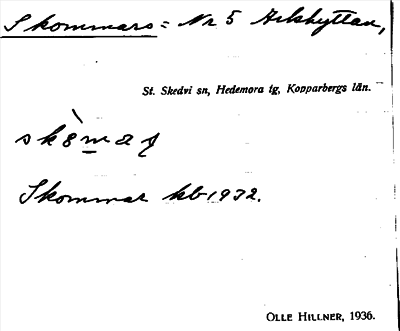 Skommars = Nr 5 Arkhyttan,
St. Skedvi sn, Hedemora tg, Kopparbergs län.
Skommar kb 1932.
OLLE HILLNER, 1936.